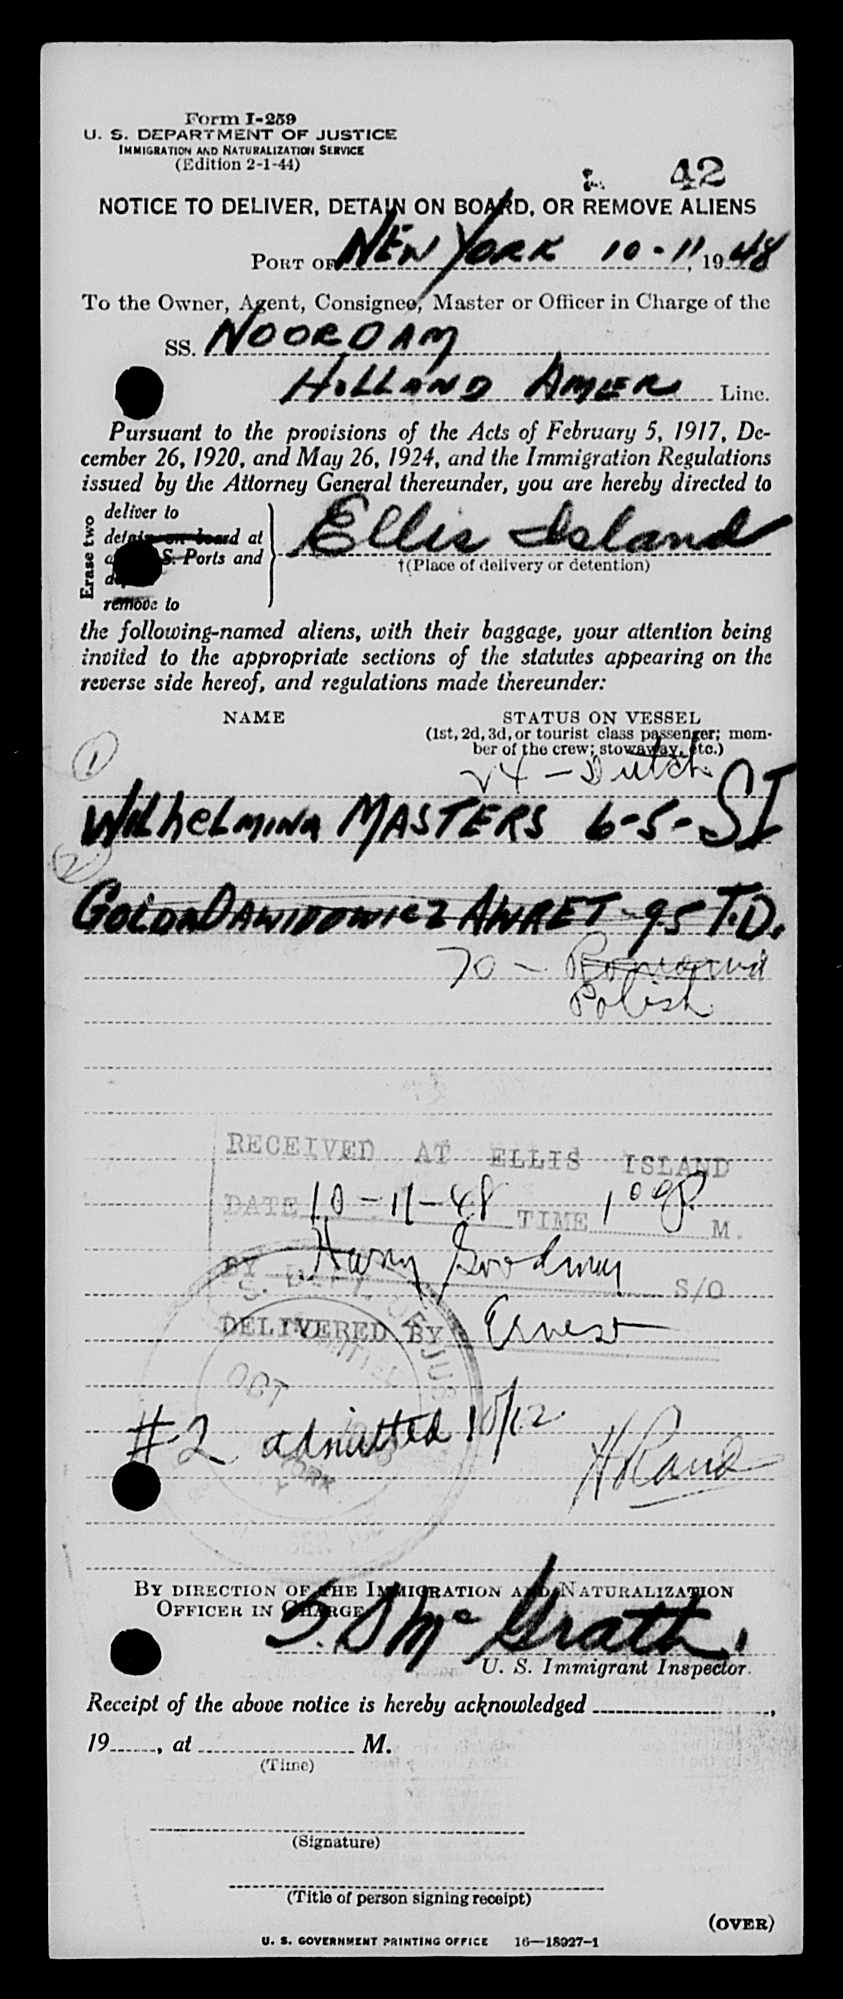 Form I-259
U. S. DEPARTMENT OF JUSTICE
IMMIGRATION AND NATURALIZATION SERVICE
(Edition 2-1-44)
42
NOTICE TO DELIVER, DETAIN ON BOARD, OR REMOVE ALIENS
PORT OF NEW YORK 10-11, 1948
To the Owner, Agent, Consignee, Master or Officer in Charge of the
SS. NOORDAM
HOLLAND AMER Line.
Pursuant to the provisions of the Acts of February 5, 1917, De-
cember 26, 1920, and May 26, 1924, and the Immigration Regulations
issued by the Attorney General thereunder, you are hereby directed to
Erase two
deliver to
detain on board at
S. Ports and
remove to
Ellis Island
†(Place of delivery or detention)
the following-named aliens, with their baggage, your attention being
invited to the appropriate sections of the statutes appearing on the
reverse side hereof, and regulations made thereunder:
NAME STATUS ON VESSEL
(1st, 2d, 3d, or tourist class passenger; mem-
ber of the crew; stowaway, etc.)
1
24 - Dutch
WILHELMINA MASTERS 6-5- SI
2
GOLDA DAWIDOWICZ AWRET - 95 T.D.
70 -
Polish
RECEIVED AT ELLIS ISLAND
DATE 10-11-48 TIME 1 00 P M.
BY Harry Goodman S/O
DELIVERED BY Ernest
OCT
#2 admitted 10/12
BY DIRECTION OF THE IMMIGRATION AND NATURALIZATION
OFFICER IN CHARGE
McGrath
U. S. Immigrant Inspector.
Receipt of the above notice is hereby acknowledged ,
19 , at M.
(Time)
(Signature)
(Title of person signing receipt)
(OVER)
U. S. GOVERNMENT PRINTING OFFICE 16—18927-1